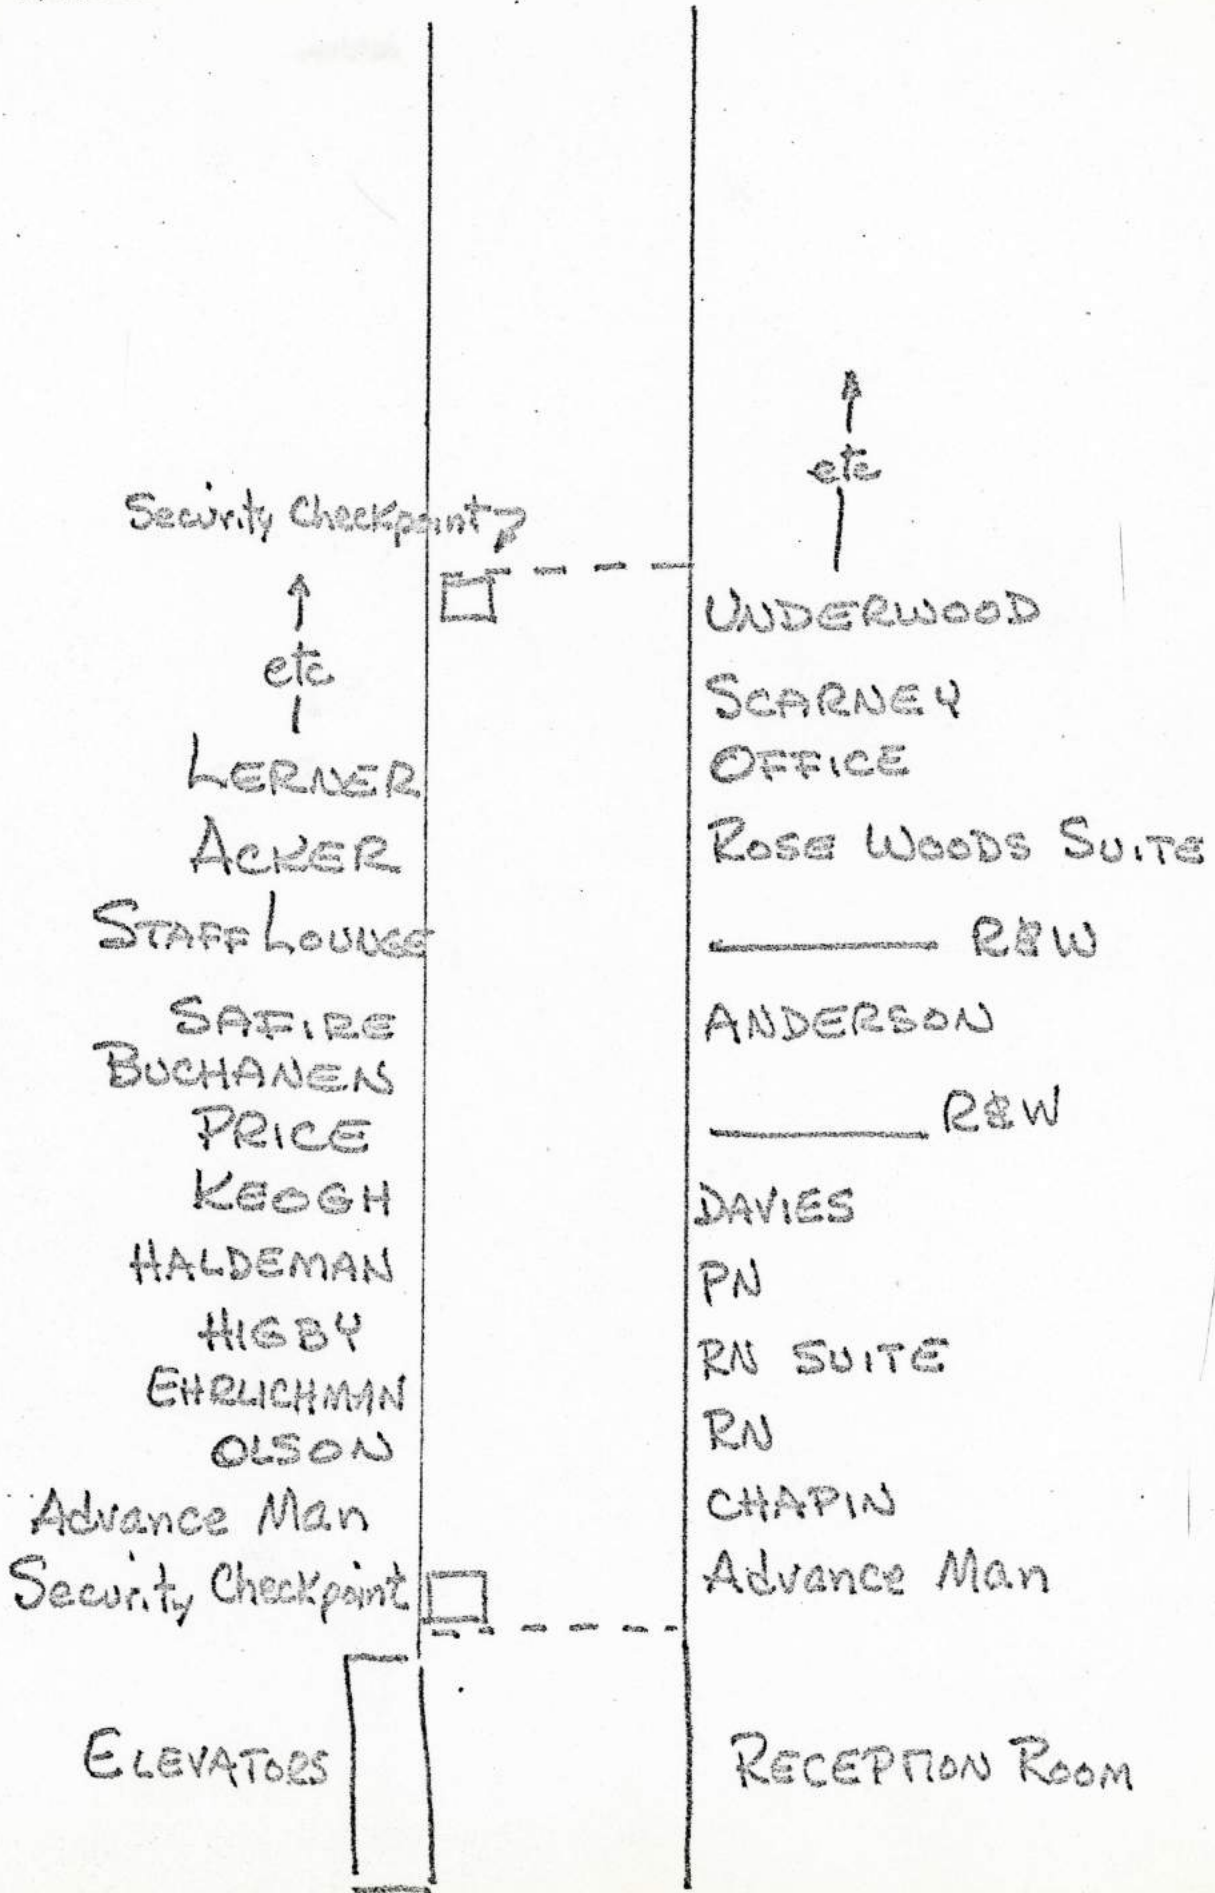 Security Checkpoint
etc
Lerner
Acker
Staff Lounge
Safire
Buchanen
Price
Keogh
Haldeman
Higby
Ehrlichman
Olson
Advance Man
Security Checkpoint
Elevators
etc
Underwood
Scarney
Office
Rose Woods Suite
R&W
Anderson
R&W
Davies
PN
RN Suite
RN
Chapin
Advance Man
Reception Room